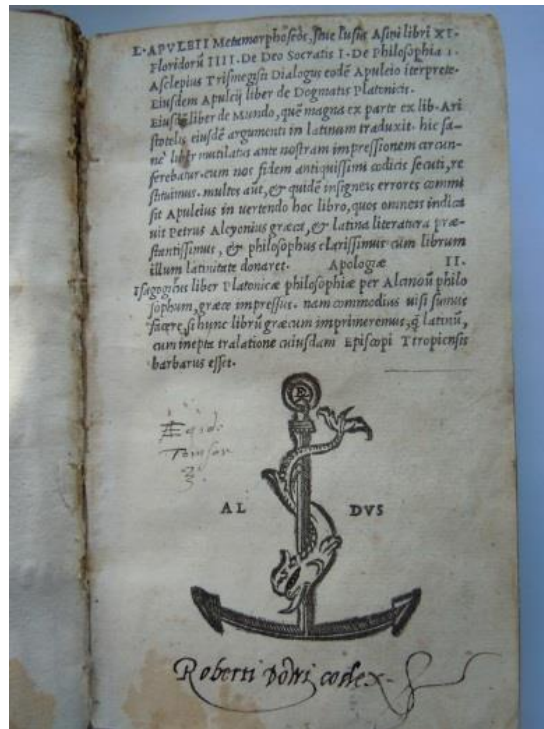 L. APVLEII Metamorphoseõs, siue lusus Asini libri XI.
Floridorũ IIII. De Deo Socratis I. De Philosophia I.
Asclepius Trismegisti Dialogus eodẽ Apuleio iterprete.
Eiusdem Apuleij liber de Dogmatis Platonicis.
Eiusdẽ liber de Mundo, quẽ magna ex parte ex lib. Ari
stotelis eiusdẽ argumenti in latinum traduxit. hic sa-
ne liber mutilatus ante nostram impressionem circun-
ferebatur. eum nos fidem antiquissimi codicis secuti, re
stituimus. multos aũt, & quidẽ insigneis errores commi
sit Apuleius in uertendo hoc libro, quos omneis indica
uit Petrus Alcyonius græca, & latina literatura præ-
stantissimus, & philosophus clarissimus cum librum
illum latinitate donaret. Apologiæ II.
Isagogicus liber Platonicæ philosophiæ per Alcinoũ philo
sophum, græce impressus. nam commodius uisi sumus
facere, si hunc librũ græcum imprimeremus, q̃ latinũ,
cum inepta tralatione cuiusdam Episcopi Tropiensis
barbarus esset.
AL DVS
Roberti codex